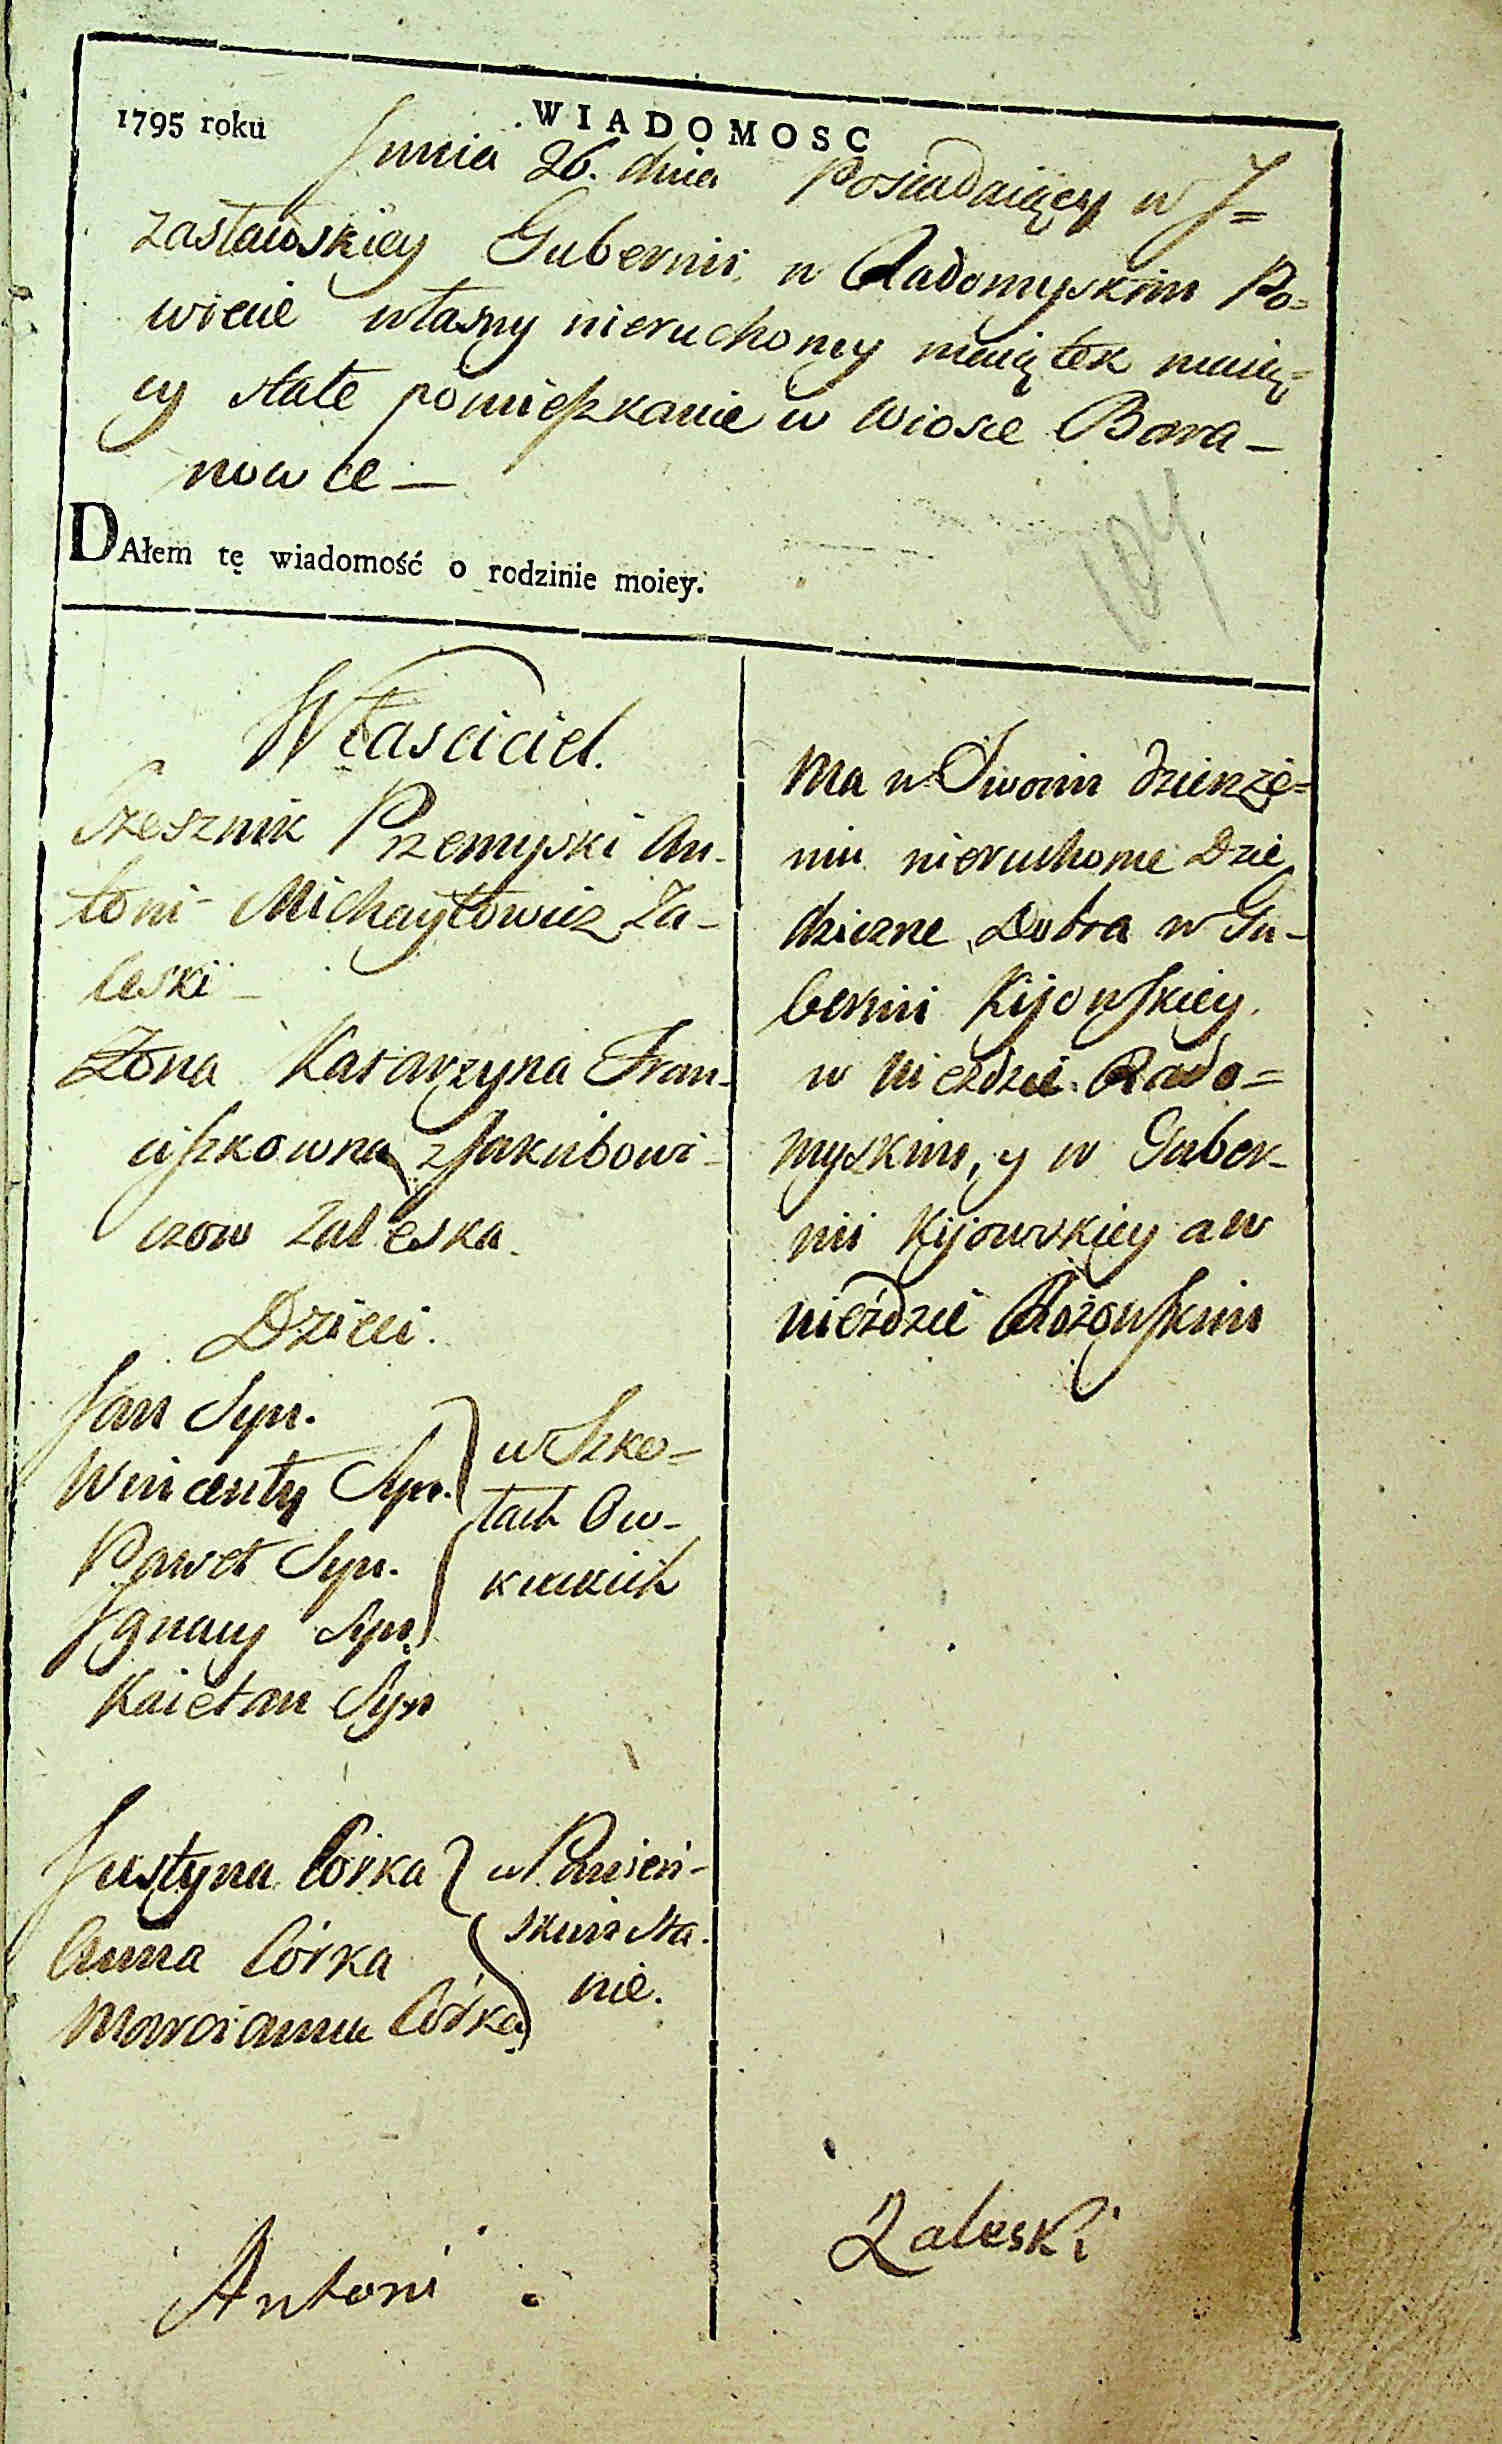 WIADOMOSC
1795 roku
Junia 26. dnia Posiadaiący w I=
zasławskiey Gubernii w Radomyskim Po=
wiecie własny nieruchomy maiątek maią=
cy stałe pomieszkanie w Wiosce Bara-
nowce -
104
DAłem tę wiadomość o rodzinie moiey.
Własciciel.
Czesznik Przemyski An-
toni Michayłowicz Za-
leski -
Żona Katarzyna Fran-
ciszkowna z Jakubowi-
czow Zaleska.
Dzieci.
Jan Syn.
Wincenty Syn.
Paweł Syn.
Ignacy Syn.
Kaietan Syn
w Szko=
łach Ow-
ruckich
Justyna Córka
Anna Córka
Marcianna Córka
w Panień-
skim sta-
nie.
Ma w Swoim dzierże=
niu nieruchome Dzie
dziczne Dobra w Gu-
bernii Kijowskiey.
w Uiezdzie Rado=
myskim, y w Guber-
nii Kijowskiey a w
uiezdzie
Antoni Zaleski